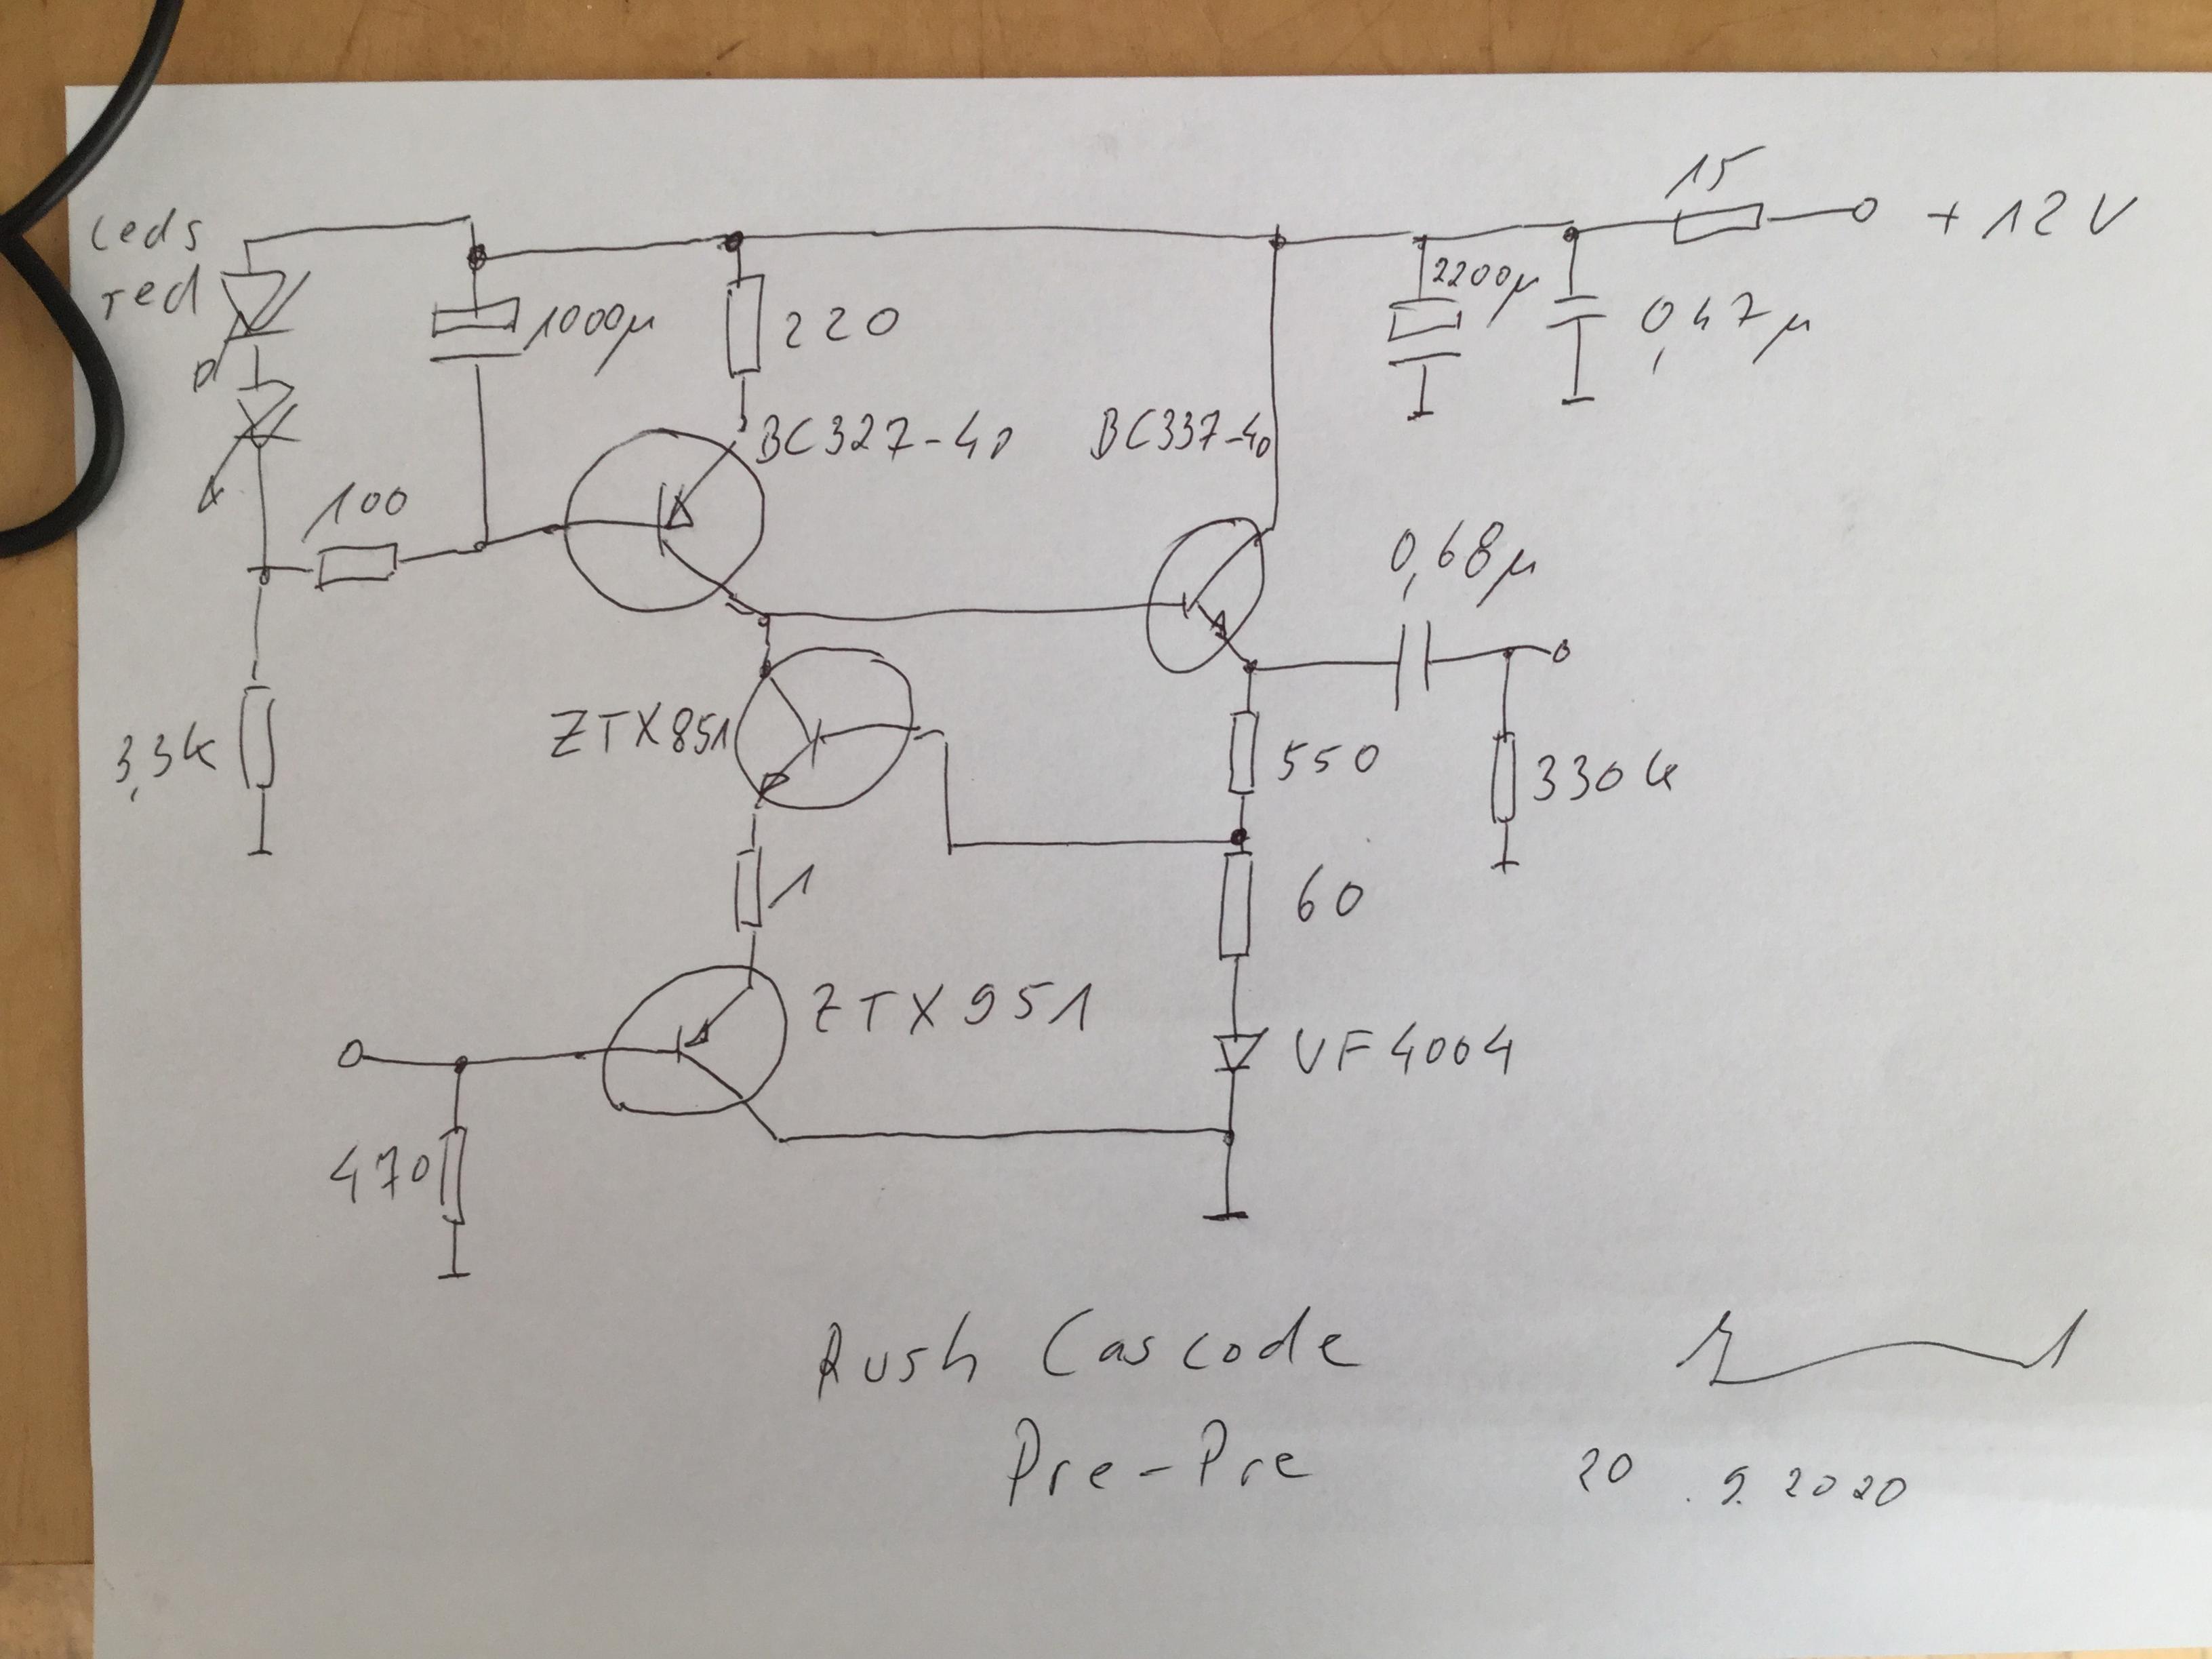 15
+ 12 V
Leds
red
1000µ
220
2200µ
0,47µ
BC327-40
BC337-40
100
0,68µ
ZTX851
3,3k
550
330k
1
60
ZTX951
UF4004
470
Rush Cascode
Pre-Pre
20.9.2020